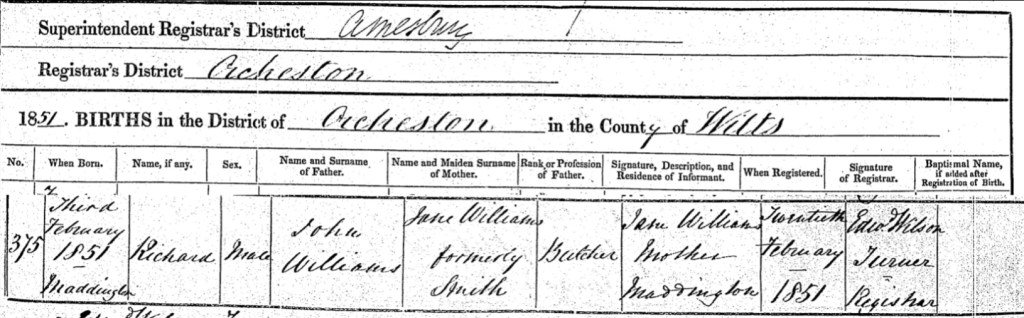 Superintendent Registrar's District Amesbury
Registrar's District Orcheston
1851. BIRTHS in the District of Orcheston in the County of Wilts
No. When Born. Name, if any. Sex. Name and Surname of Father. Name and Maiden Surname of Mother. Rank or Profession of Father. Signature, Description, and Residence of Informant. When Registered. Signature of Registrar. Baptismal Name, if added after Registration of Birth.
375
Third
February
1851
Maddington
Richard
Male
John
Williams
Jane Williams
formerly
Smith
Butcher
Jane Williams
Mother
Maddington
Twentieth
February
1851
Edwd Wilson
Turner
Registrar